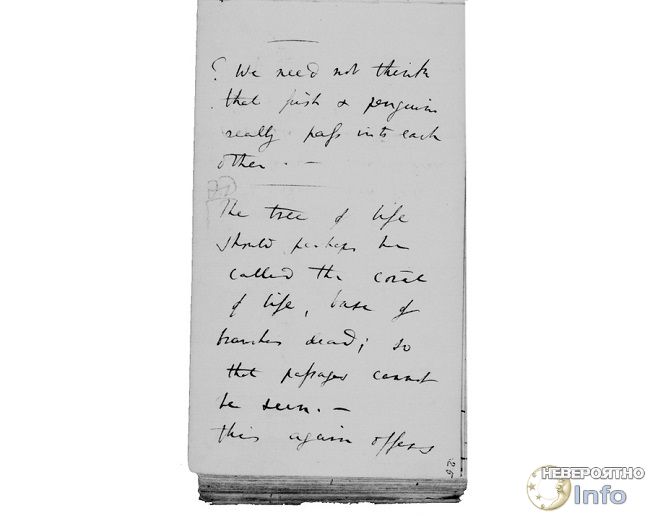 ? We need not think
that fish & penguins
really pass into each
other. —
The tree of life
should perhaps be
called the coral
of life, base of
branches dead; so
that passages cannot
be seen. —
this again offers
25
НЕВЕРОЯТНО
Info